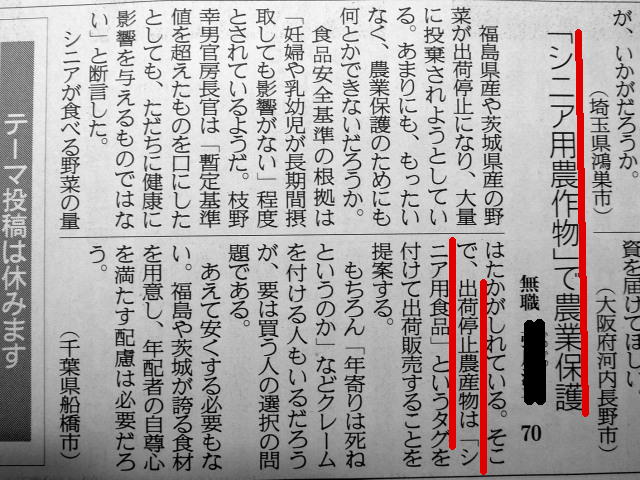 が、いかがだろうか。
（埼玉県鴻巣市）
「シニア用農作物」で農業保護
無職
70
福島県産や茨城県産の野
菜が出荷停止になり、大量
に投棄されようとしてい
る。あまりにも、もったい
なく、農業保護のためにも
何とかできないだろうか。
食品安全基準の根拠は
「妊婦や乳幼児が長期間摂
取しても影響がない」程度
とされているようだ。枝野
幸男官房長官は「暫定基準
値を超えたものを口にした
としても、ただちに健康に
影響を与えるものではな
い」と断言した。
シニアが食べる野菜の量
はたかがしれている。そこ
で、出荷停止農産物は「シ
ニア用食品」というタグを
付けて出荷販売することを
提案する。
もちろん「年寄りは死ね
というのか」などクレーム
を付ける人もいるだろう
が、要は買う人の選択の問
題である。
あえて安くする必要もな
い。福島や茨城が誇る食材
を用意し、年配者の自尊心
を満たす配慮は必要だろ
う。
（千葉県船橋市）
資を届けてほしい。
（大阪府河内長野市）
テーマ投稿は休みます